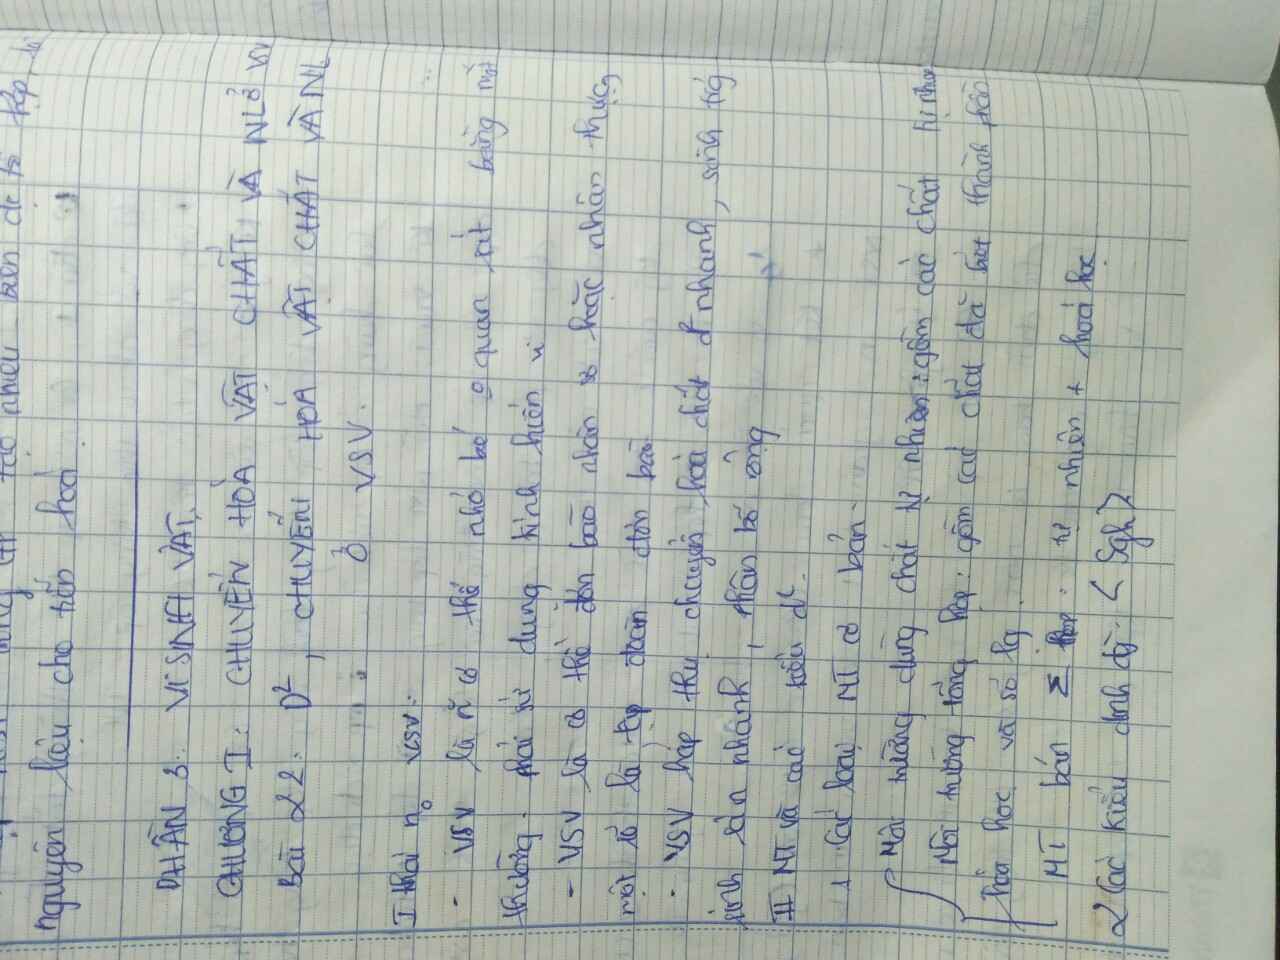 tạo nhiều biến dị tổ hợp, là
nguyên liệu cho tiến hoá
PHẦN 3: VI SINH VẬT.
CHƯƠNG I: CHUYỂN HÓA VẬT CHẤT VÀ NL Ở VSV
Bài 22: D², CHUYỂN HÓA VẬT CHẤT VÀ NL
Ở VSV.
I Khái no VSV:
- VSV là n~ cơ thể nhỏ bé o quan sát bằng mắt
thường. phải sử dụng kính hiển vi
- VSV là cơ thể đơn bào nhân sơ hoặc nhân thực,
một số là tập đoàn đơn bào
- VSV hấp thu, chuyển hoá chất d² nhanh, sinh trg
sinh sản nhanh, phân bố rộng
II MT và các kiểu d².
1 Các loại MT cơ bản.
Môi trường dùng chất tự nhiên: gồm các chất tự nhiên
Môi trường tổng hợp: gồm các chất đã biết thành phần
hóa học và số lg
MT bán Σ hợp: tự nhiên + hoá học
2 Các kiểu dinh dg. < Sgk >